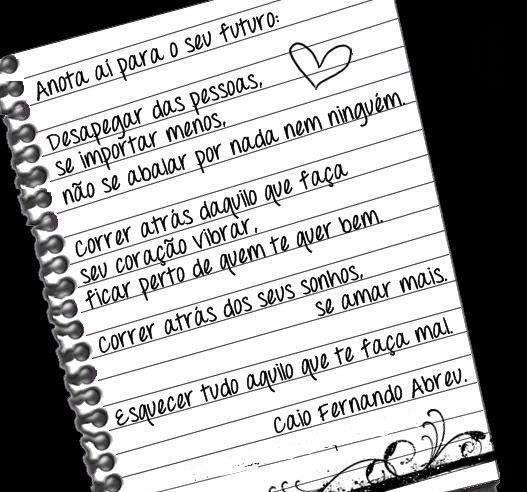 Anota aí para o seu futuro:
Desapegar das pessoas,
se importar menos,
não se abalar por nada nem ninguém.
Correr atrás daquilo que faça
seu coração vibrar,
ficar perto de quem te quer bem.
Correr atrás dos seus sonhos,
se amar mais.
Esquecer tudo aquilo que te faça mal.
Caio Fernando Abreu.